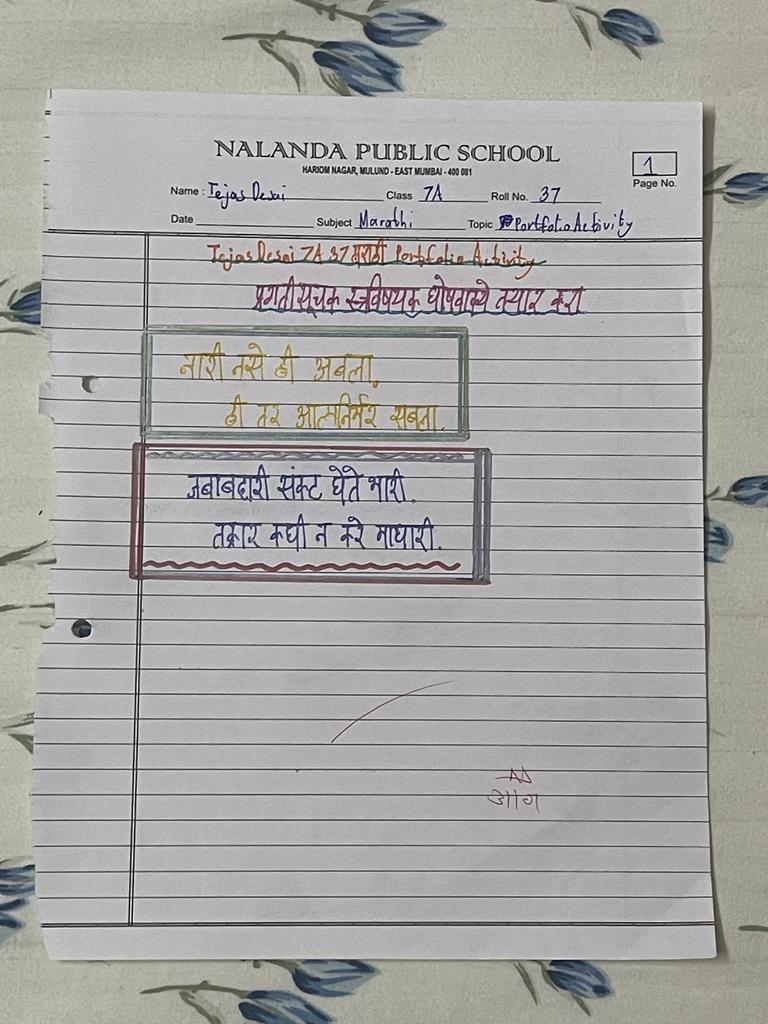 NALANDA PUBLIC SCHOOL
HARIOM NAGAR, MULUND - EAST MUMBAI - 400 081
1
Page No.
Name : Tejas Desai Class 7A Roll No. 37
Date Subject Marathi Topic Portfolio Activity
Tejas Desai 7A 37 मराठी Portfolio Activity
प्रगतीसूचक स्त्रविषयक घोषवाक्ये तयार करा
नारी नसे ही अबला,
ही तर आत्मनिर्भर सबला.
जबाबदारी संकट घेते भारी.
तक्रार कधी न करे माघारी.